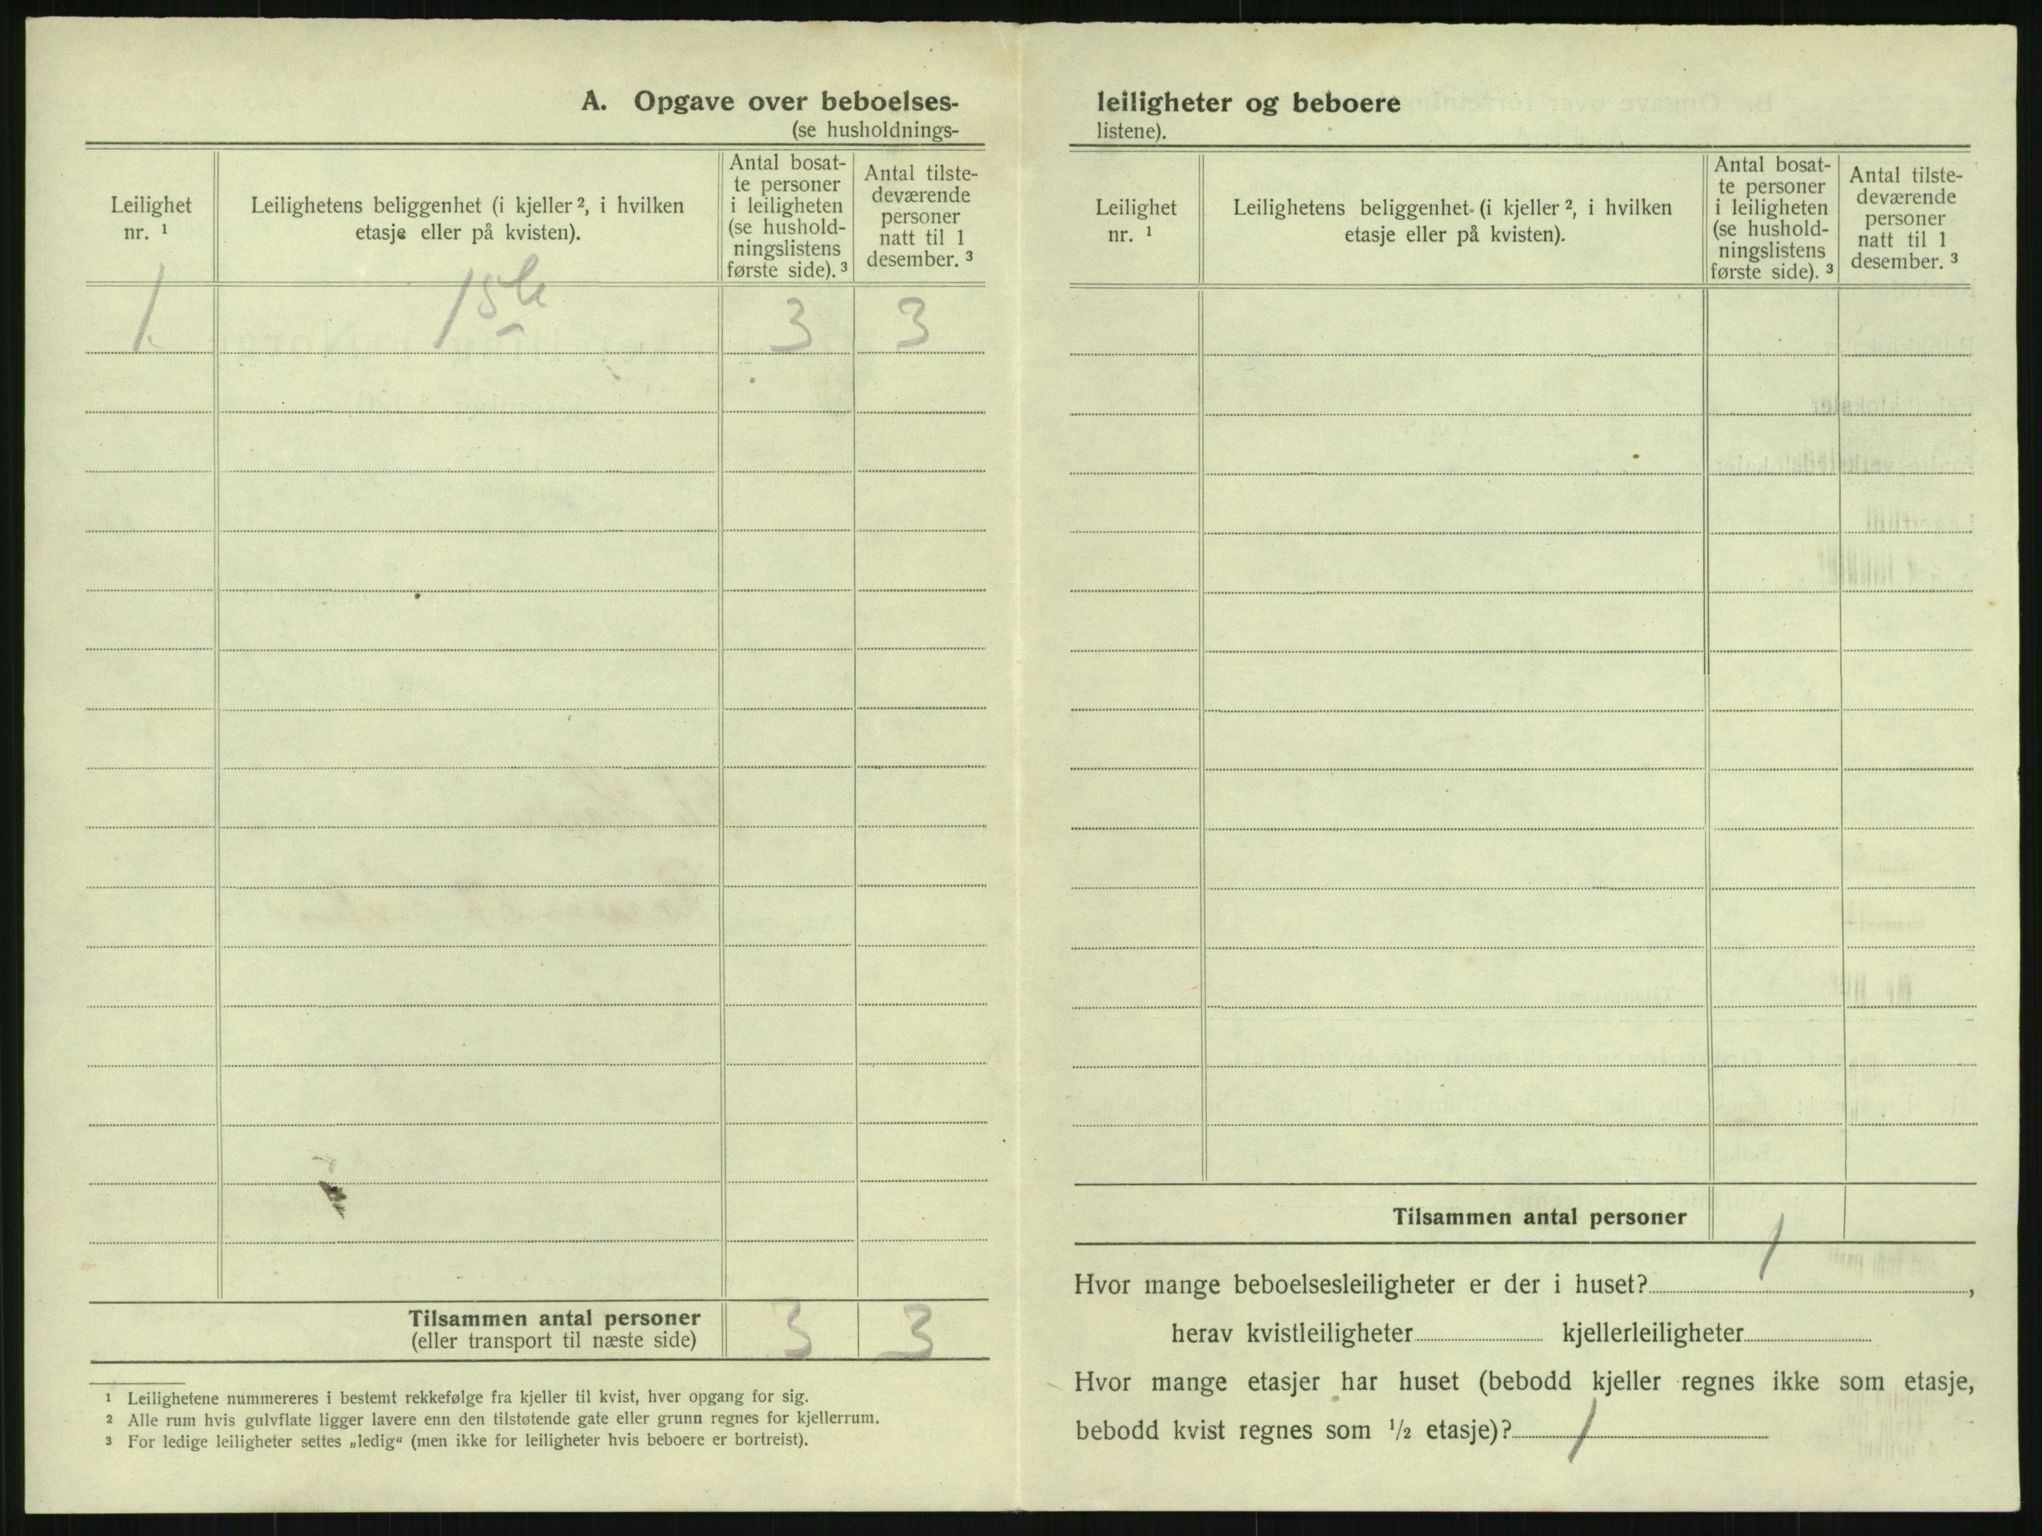 A. Opgave over beboelses-
(se husholdnings-
Leilighet
nr. ¹
Leilighetens beliggenhet (i kjeller ², i hvilken
etasje eller på kvisten).
Antal bosat-
te personer
i leiligheten
(se hushold-
ningslistens
første side). ³
Antal tilste-
deværende
personer
natt til 1
desember. ³
1. 1ste 3 3
Tilsammen antal personer 3 3
(eller transport til næste side)
¹ Leilighetene nummereres i bestemt rekkefølge fra kjeller til kvist, hver opgang for sig.
² Alle rum hvis gulvflate ligger lavere enn den tilstøtende gate eller grunn regnes for kjellerrum.
³ For ledige leiligheter settes „ledig“ (men ikke for leiligheter hvis beboere er bortreist).
leiligheter og beboere
listene).
Leilighet
nr. ¹
Leilighetens beliggenhet (i kjeller ², i hvilken
etasje eller på kvisten).
Antal bosat-
te personer
i leiligheten
(se hushold-
ningslistens
første side). ³
Antal tilste-
deværende
personer
natt til 1
desember. ³
Tilsammen antal personer
Hvor mange beboelsesleiligheter er der i huset? 1,
herav kvistleiligheter kjellerleiligheter
Hvor mange etasjer har huset (bebodd kjeller regnes ikke som etasje,
bebodd kvist regnes som ½ etasje)? 1